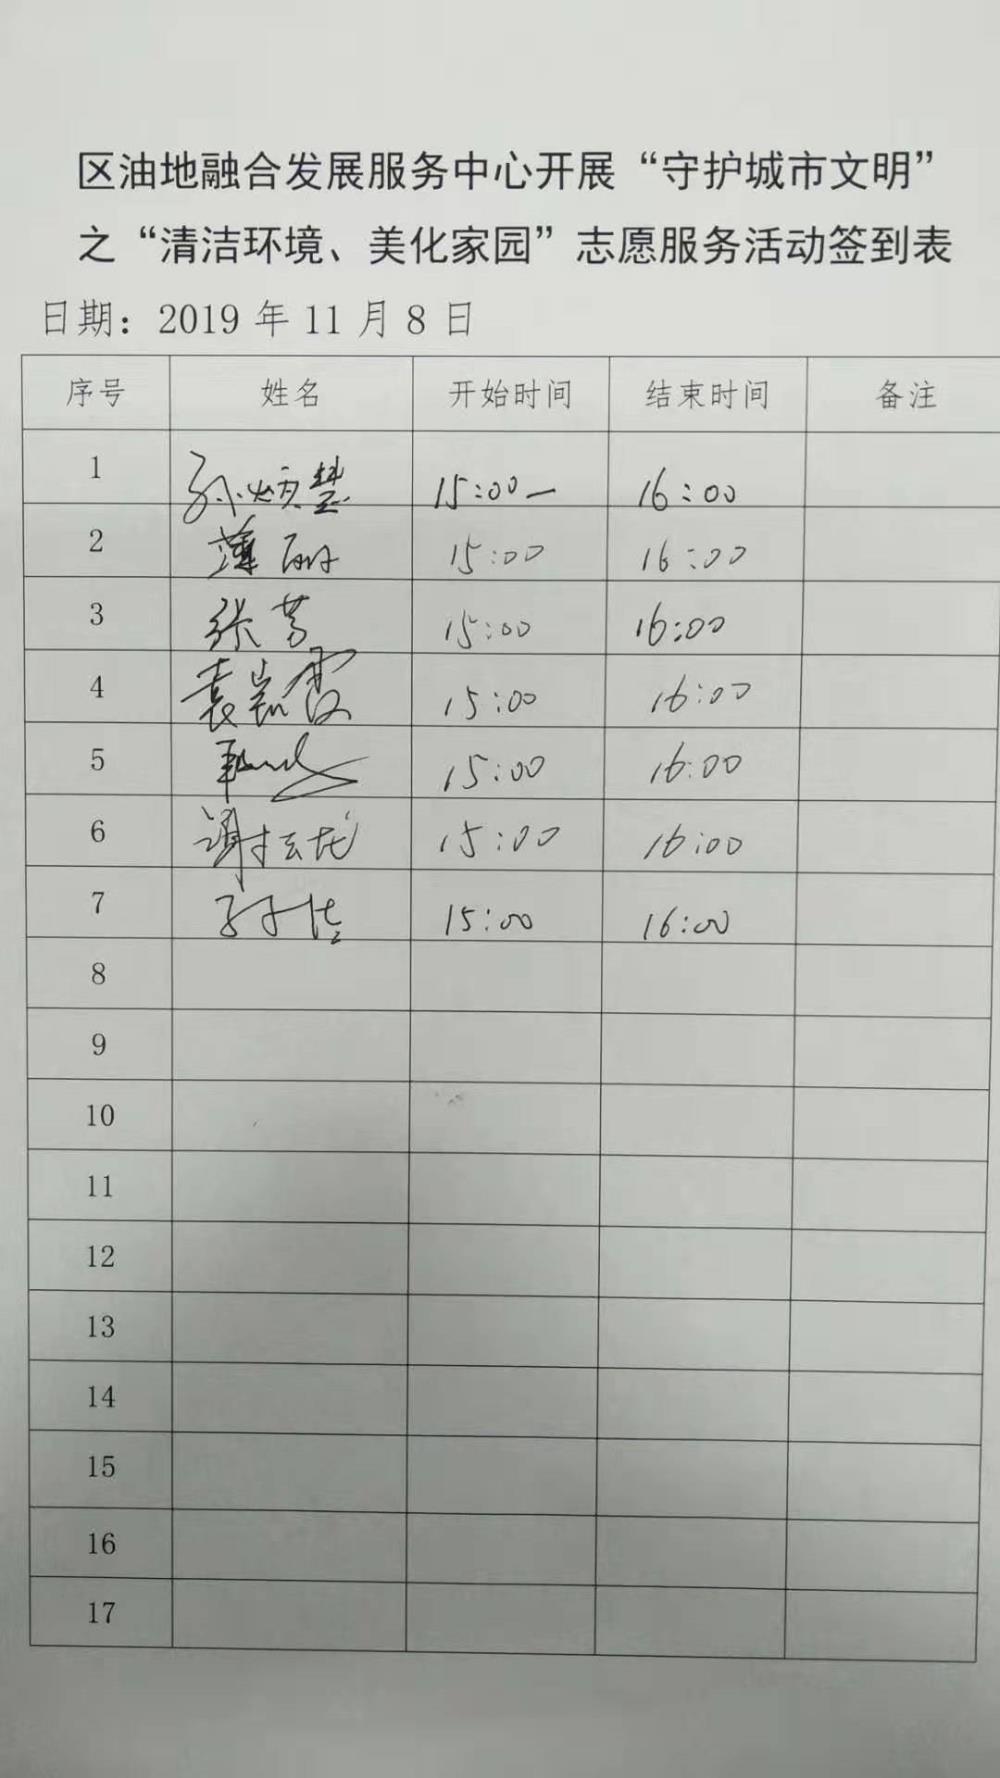 区油地融合发展服务中心开展“守护城市文明”
之“清洁环境、美化家园”志愿服务活动签到表
日期：2019年11月8日
序号 姓名 开始时间 结束时间 备注
1 孙炳慧 15:00— 16:00
2 薄丽 15:00 16:00
3 张芳 15:00 16:00
4 袁凯霞 15:00 16:00
5 15:00 16:00
6 谢云龙 15:00 16:00
7 15:00 16:00
8
9
10
11
12
13
14
15
16
17